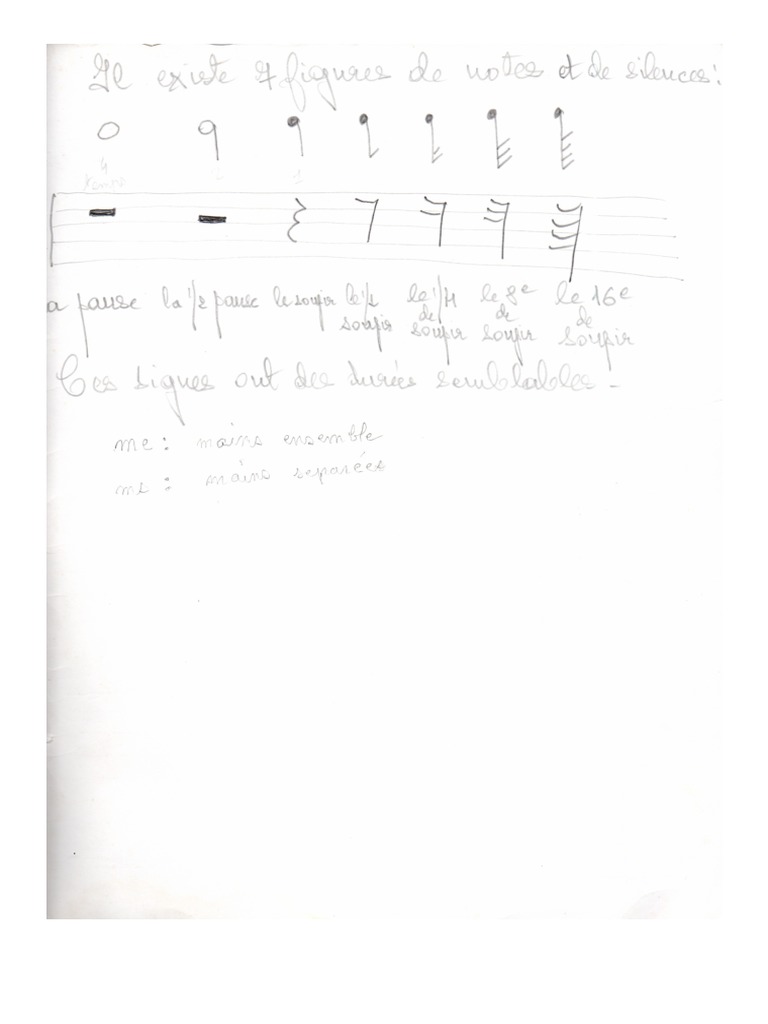 Il existe 7 figures de notes et de silences :
4 2 1
temps
a pause la 1/2 pause le soupir le 1/2 le 1/4 le 8e le 16e
de de de
soupir soupir soupir soupir
Ces signes ont des durées semblables -
me : mains ensemble
ms : mains separées